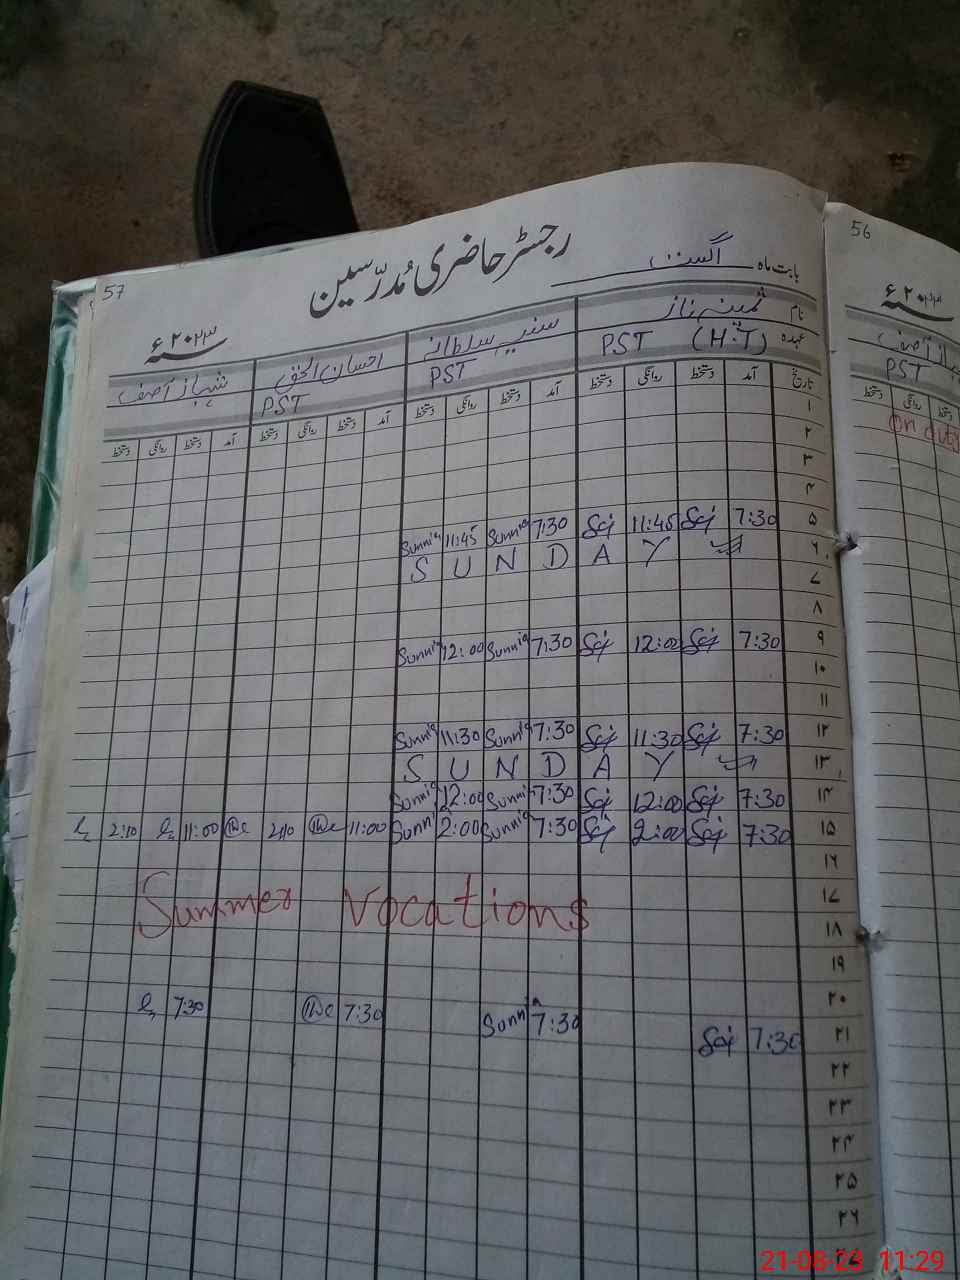 57
رجسٹر حاضری مُدرّسین
بابت ماہ اگست
سنہ ۲۰۲۳ء
نام ثمینہ ناز سنیہ سلطانہ احسان الحق شہباز آصف
عہدہ PST (H.T) PST PST
تاریخ آمد دستخط روانگی دستخط آمد دستخط روانگی دستخط آمد دستخط روانگی دستخط آمد دستخط روانگی دستخط
۱
۲
۳
۴
Sunnia 11:45 Sunnia 7:30 11:45 7:30 ۵
S U N D A Y ۶
۷
۸
Sunnia 12:00 Sunnia 7:30 12:00 7:30 ۹
۱۰
۱۱
Sunnia 11:30 Sunnia 7:30 11:30 7:30 ۱۲
S U N D A Y ۱۳
Sunnia 12:00 Sunnia 7:30 12:00 7:30 ۱۴
2:10 11:00 2:10 11:00 Sunni 2:00 Sunnia 7:30 2:00 7:30 ۱۵
۱۶
Summer Vocations ۱۷
۱۸
۱۹
۲۰
7:30 7:30 Sunnia 7:30 7:30 ۲۱
۲۲
۲۳
۲۴
۲۵
۲۶
56
۲۰۲۳ء
آصف
PST
دستخط روانگی دستخط
on duty
21-08-23 11:29